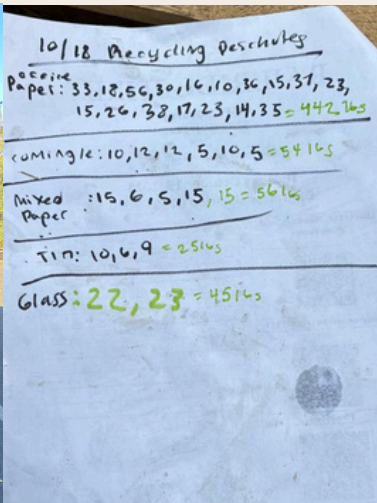 10/18 Recycling Deschutes
office
Paper: 33,18,56,30,16,10,36,15,37,23,
15,26,38,17,23,14,35=442 lbs
comingle: 10,12,12,5,10,5=54 lbs
Mixed :15,6,5,15,15=56 lbs
Paper
Tin: 10,6,9 = 25 lbs
Glass: 22, 23 = 45 lbs